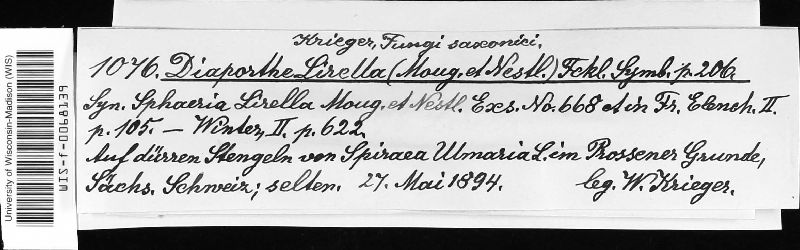 Krieger, Fungi saxonici.
1076. Diaporthe Lirella (Moug. et Nestl.) Fckl. Symb. p. 206.
Syn. Sphaeria Lirella Moug. et Nestl. Exs. No. 668 et in Fr. Elench. II.
p. 105. — Winter, II. p. 622.
Auf dürren Stengeln von Spiraea Ulmaria L. im Prossener Grunde,
Sächs. Schweiz; selten. 27. Mai 1894. leg. W. Krieger.
University of Wisconsin-Madison (WIS)
WIS-f-0068139